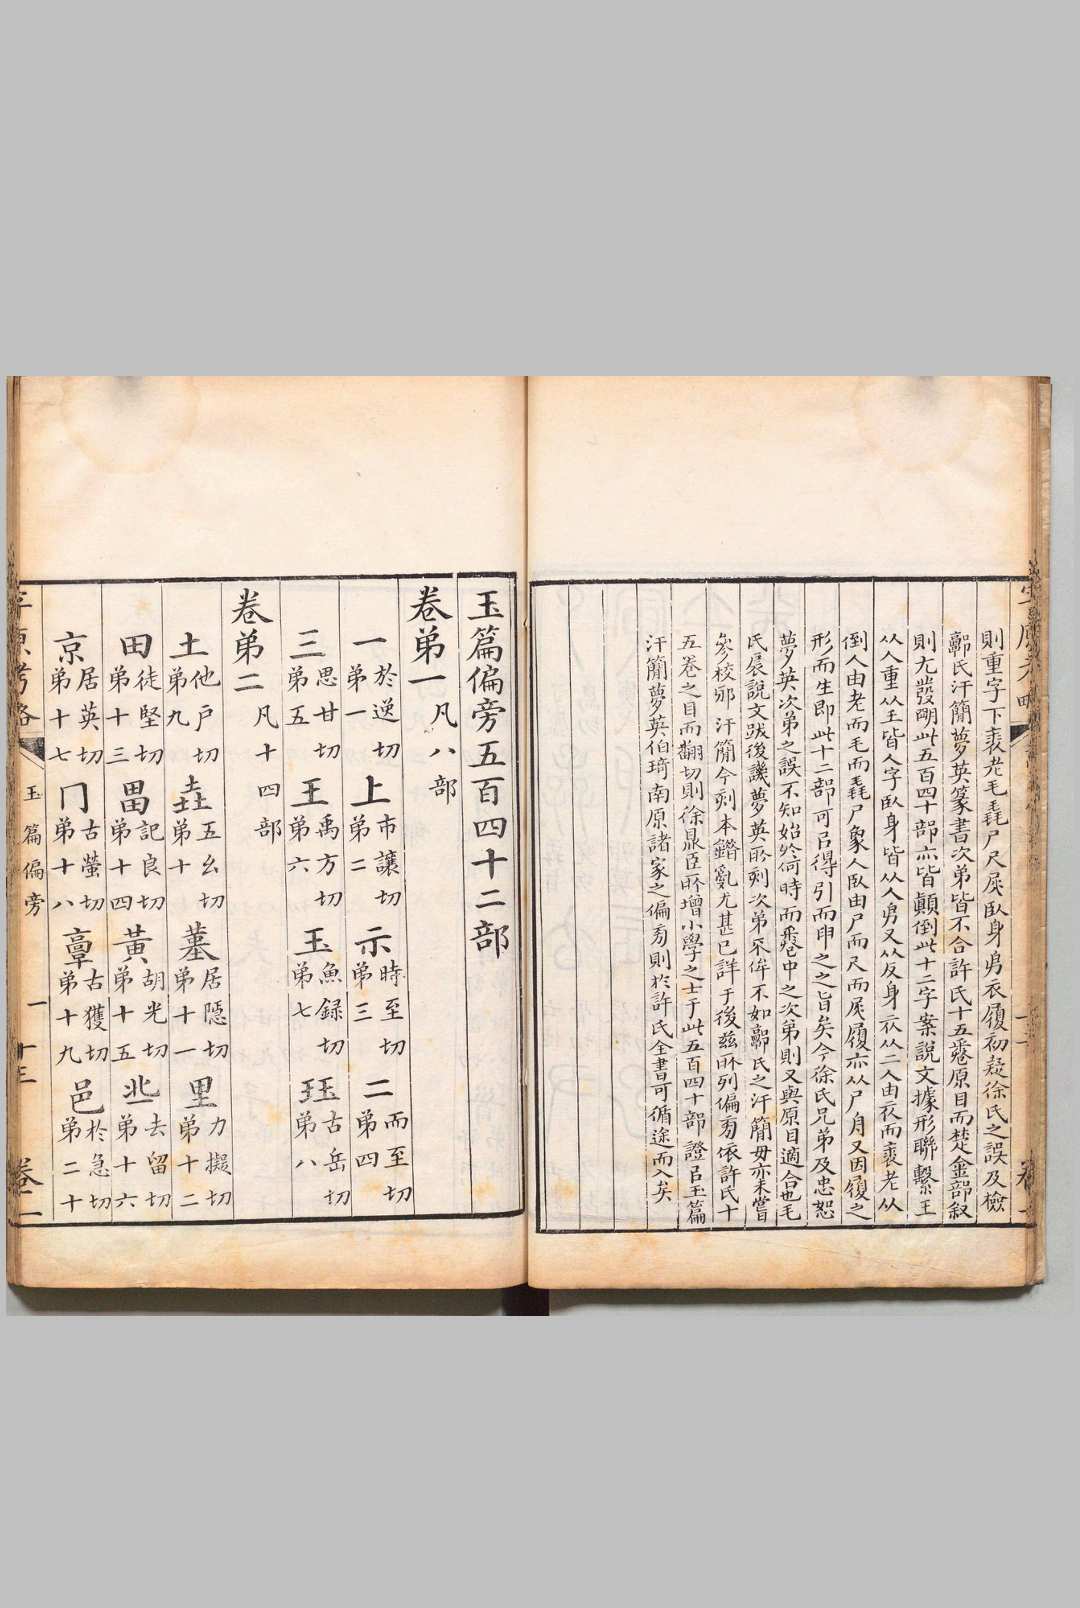 則重字下裘老毛毳尸尺尾臥身㐆衣履初疑徐氏之誤及檢
鄭氏汗簡夢英篆書次弟皆不合許氏十五卷原目而楚金部叙
則尤發明此五百四十部亦皆顛倒此十二字案說文據形聯繫王
从人重从王皆人字臥身皆从人㐆又从反身衣从二人由衣而裘老从
倒人由老而毛而毳尸象人臥由尸而尺而尾履亦从尸舟又因履之
形而生即此十二部可㠯得引而申之之旨矣今徐氏兄弟及忠恕
夢英次弟之誤不知始於何時而卷中之次弟則又與原目適合也毛
氏扆說文跋後譏夢英所刻次弟乖侔不如鄭氏之汗簡毋亦未嘗
參校邪汗簡今刻本錯亂尤甚已詳于後茲所列偏旁依許氏十
五卷之目而翻切則徐鼎臣所增小學之士于此五百四十部證㠯玉篇
汗簡夢英伯琦南原諸家之偏旁則於許氏全書可循途而入矣
玉篇偏旁五百四十二部
卷弟一 凡八部
一 於逆切 弟一 上 市讓切 弟二 示 時至切 弟三 二 而至切 弟四
三 思甘切 弟五 王 禹方切 弟六 玉 魚録切 弟七 玨 古岳切 弟八
卷弟二 凡十四部
土 他戶切 弟九 垚 五幺切 弟十 堇 居隱切 弟十一 里 力擬切 弟十二
田 徒堅切 弟十三 畕 記良切 弟十四 黃 胡光切 弟十五 丠 去留切 弟十六
京 居英切 弟十七 冂 古螢切 弟十八 𩫏 古獲切 弟十九 邑 於急切 弟二十
字原考略 玉篇偏旁 一 十三 卷二